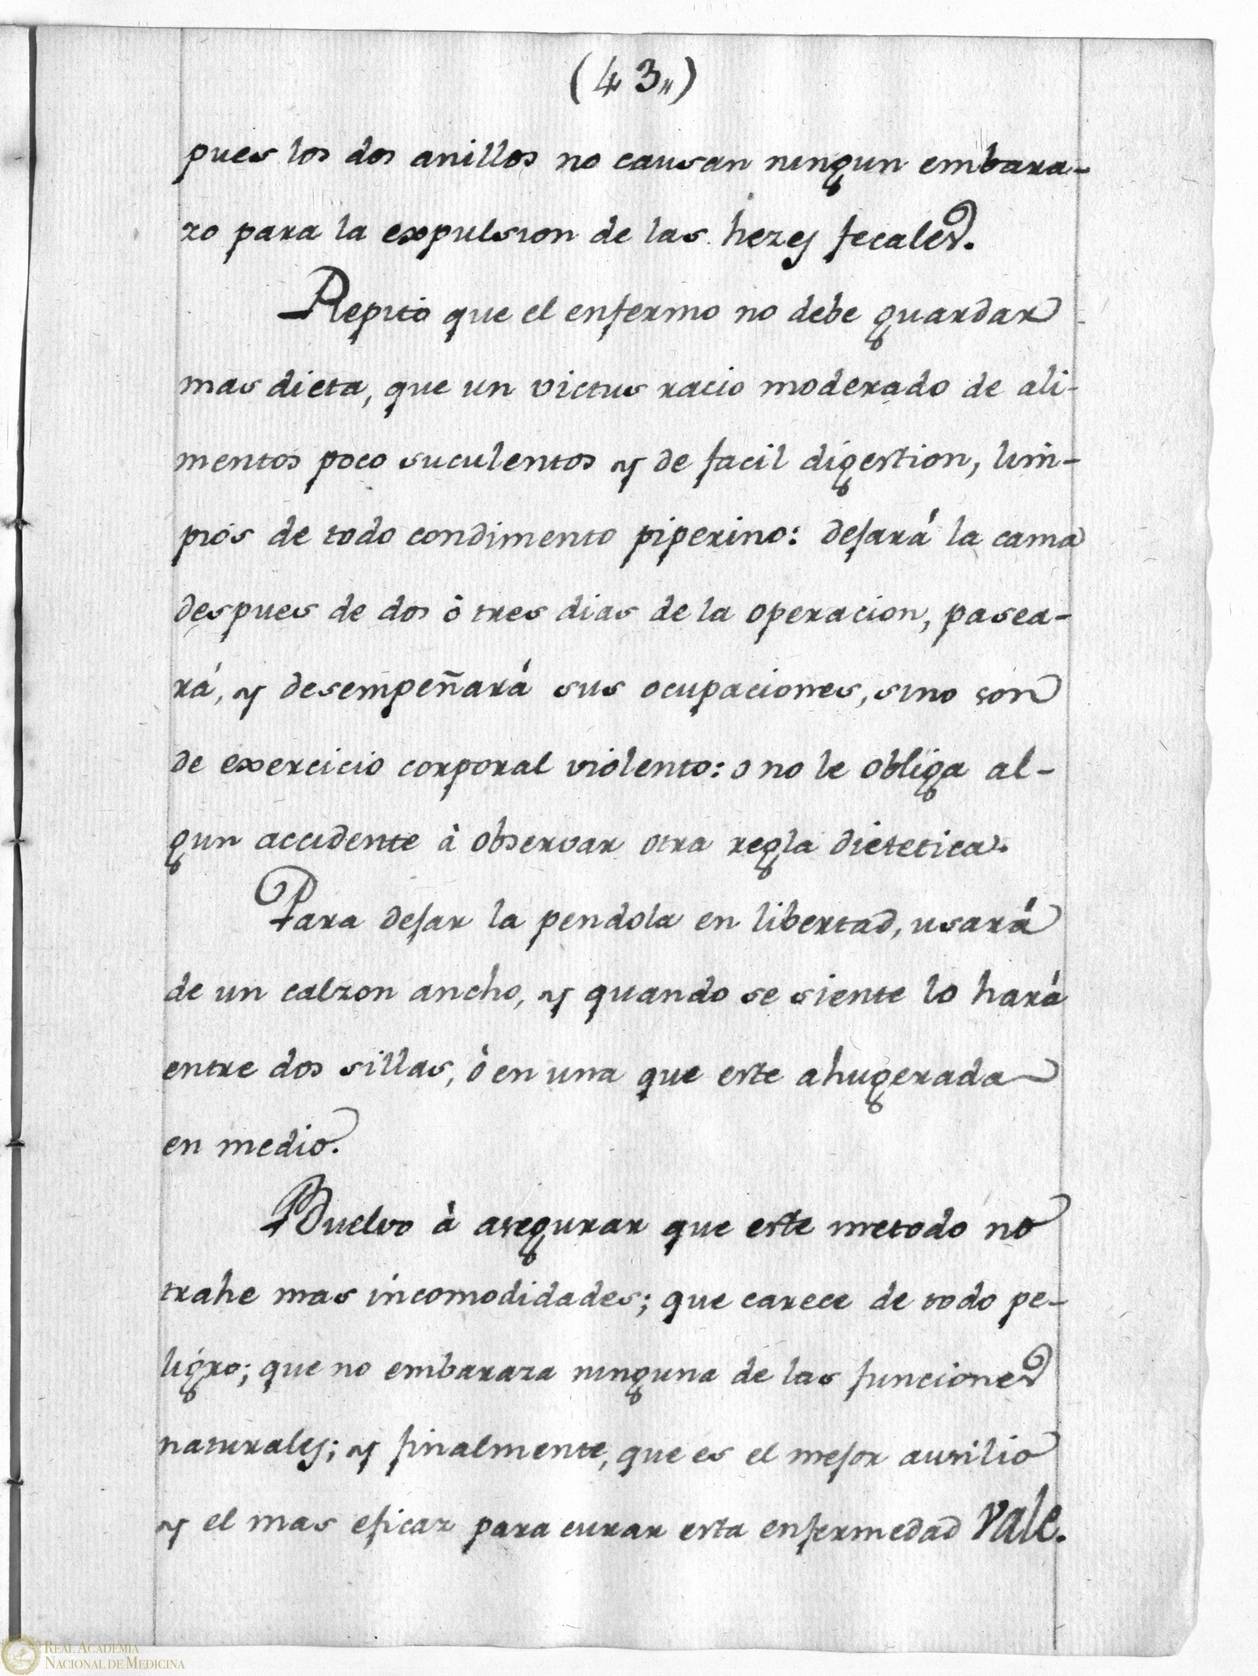 (43,,)
pues los dos anillos no causan ningun embara-
zo para la expulsion de las hezes fecales.
Repito que el enfermo no debe guardar
mas dieta, que un victus racio moderado de ali-
mentos poco suculentos y de facil digestion, lim-
pios de todo condimento piperino: dejará la cama
despues de dos ò tres dias de la operacion, pasea-
rá, y desempeñará sus ocupaciones, sino son
de exercicio corporal violento: o no le obliga al-
gun accidente à observar otra regla dietetica.
Para dejar la pendola en libertad, usará
de un calzon ancho, y quando se siente lo hará
entre dos sillas, ò en una que este ahugerada
en medio.
Buelvo à asegurar que este metodo no
trahe mas incomodidades; que carece de todo pe-
ligro; que no embaraza ninguna de las funciones
naturales; y finalmente, que es el mejor ausilio
y el mas eficaz para curar esta enfermedad Vale.
REAL ACADEMIA
NACIONAL DE MEDICINA